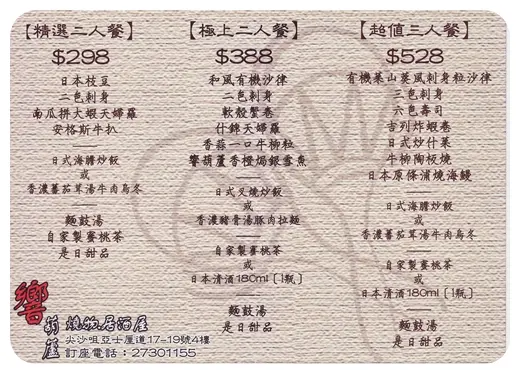 【精選二人餐】
$298
日本枝豆
二色刺身
南瓜拼大蝦天婦羅
安格斯牛扒
日式海膽炒飯
或
香濃蕃茄茸湯牛肉烏冬
麵豉湯
自家製蜜桃茶
是日甜品
【極上二人餐】
$388
和風有機沙律
二色刺身
軟殼蟹卷
什錦天婦羅
香蒜一口牛柳粒
響葫蘆香橙焗銀雪魚
日式叉燒炒飯
或
香濃豬骨湯豚肉拉麵
自家製蜜桃茶
或
日本清酒180ml〔1瓶〕
麵豉湯
是日甜品
【超值三人餐】
$528
有機菜山葵風刺身粒沙律
三色刺身
六色壽司
吉列炸蝦卷
日式炒什菜
牛柳陶板燒
日本原條蒲燒海鰻
日式海膽炒飯
或
香濃蕃茄茸湯牛肉烏冬
自家製蜜桃茶
或
日本清酒180ml〔1瓶〕
麵豉湯
是日甜品
響葫蘆
燒物居酒屋
尖沙咀亞士厘道17-19號4樓
訂座電話：27301155